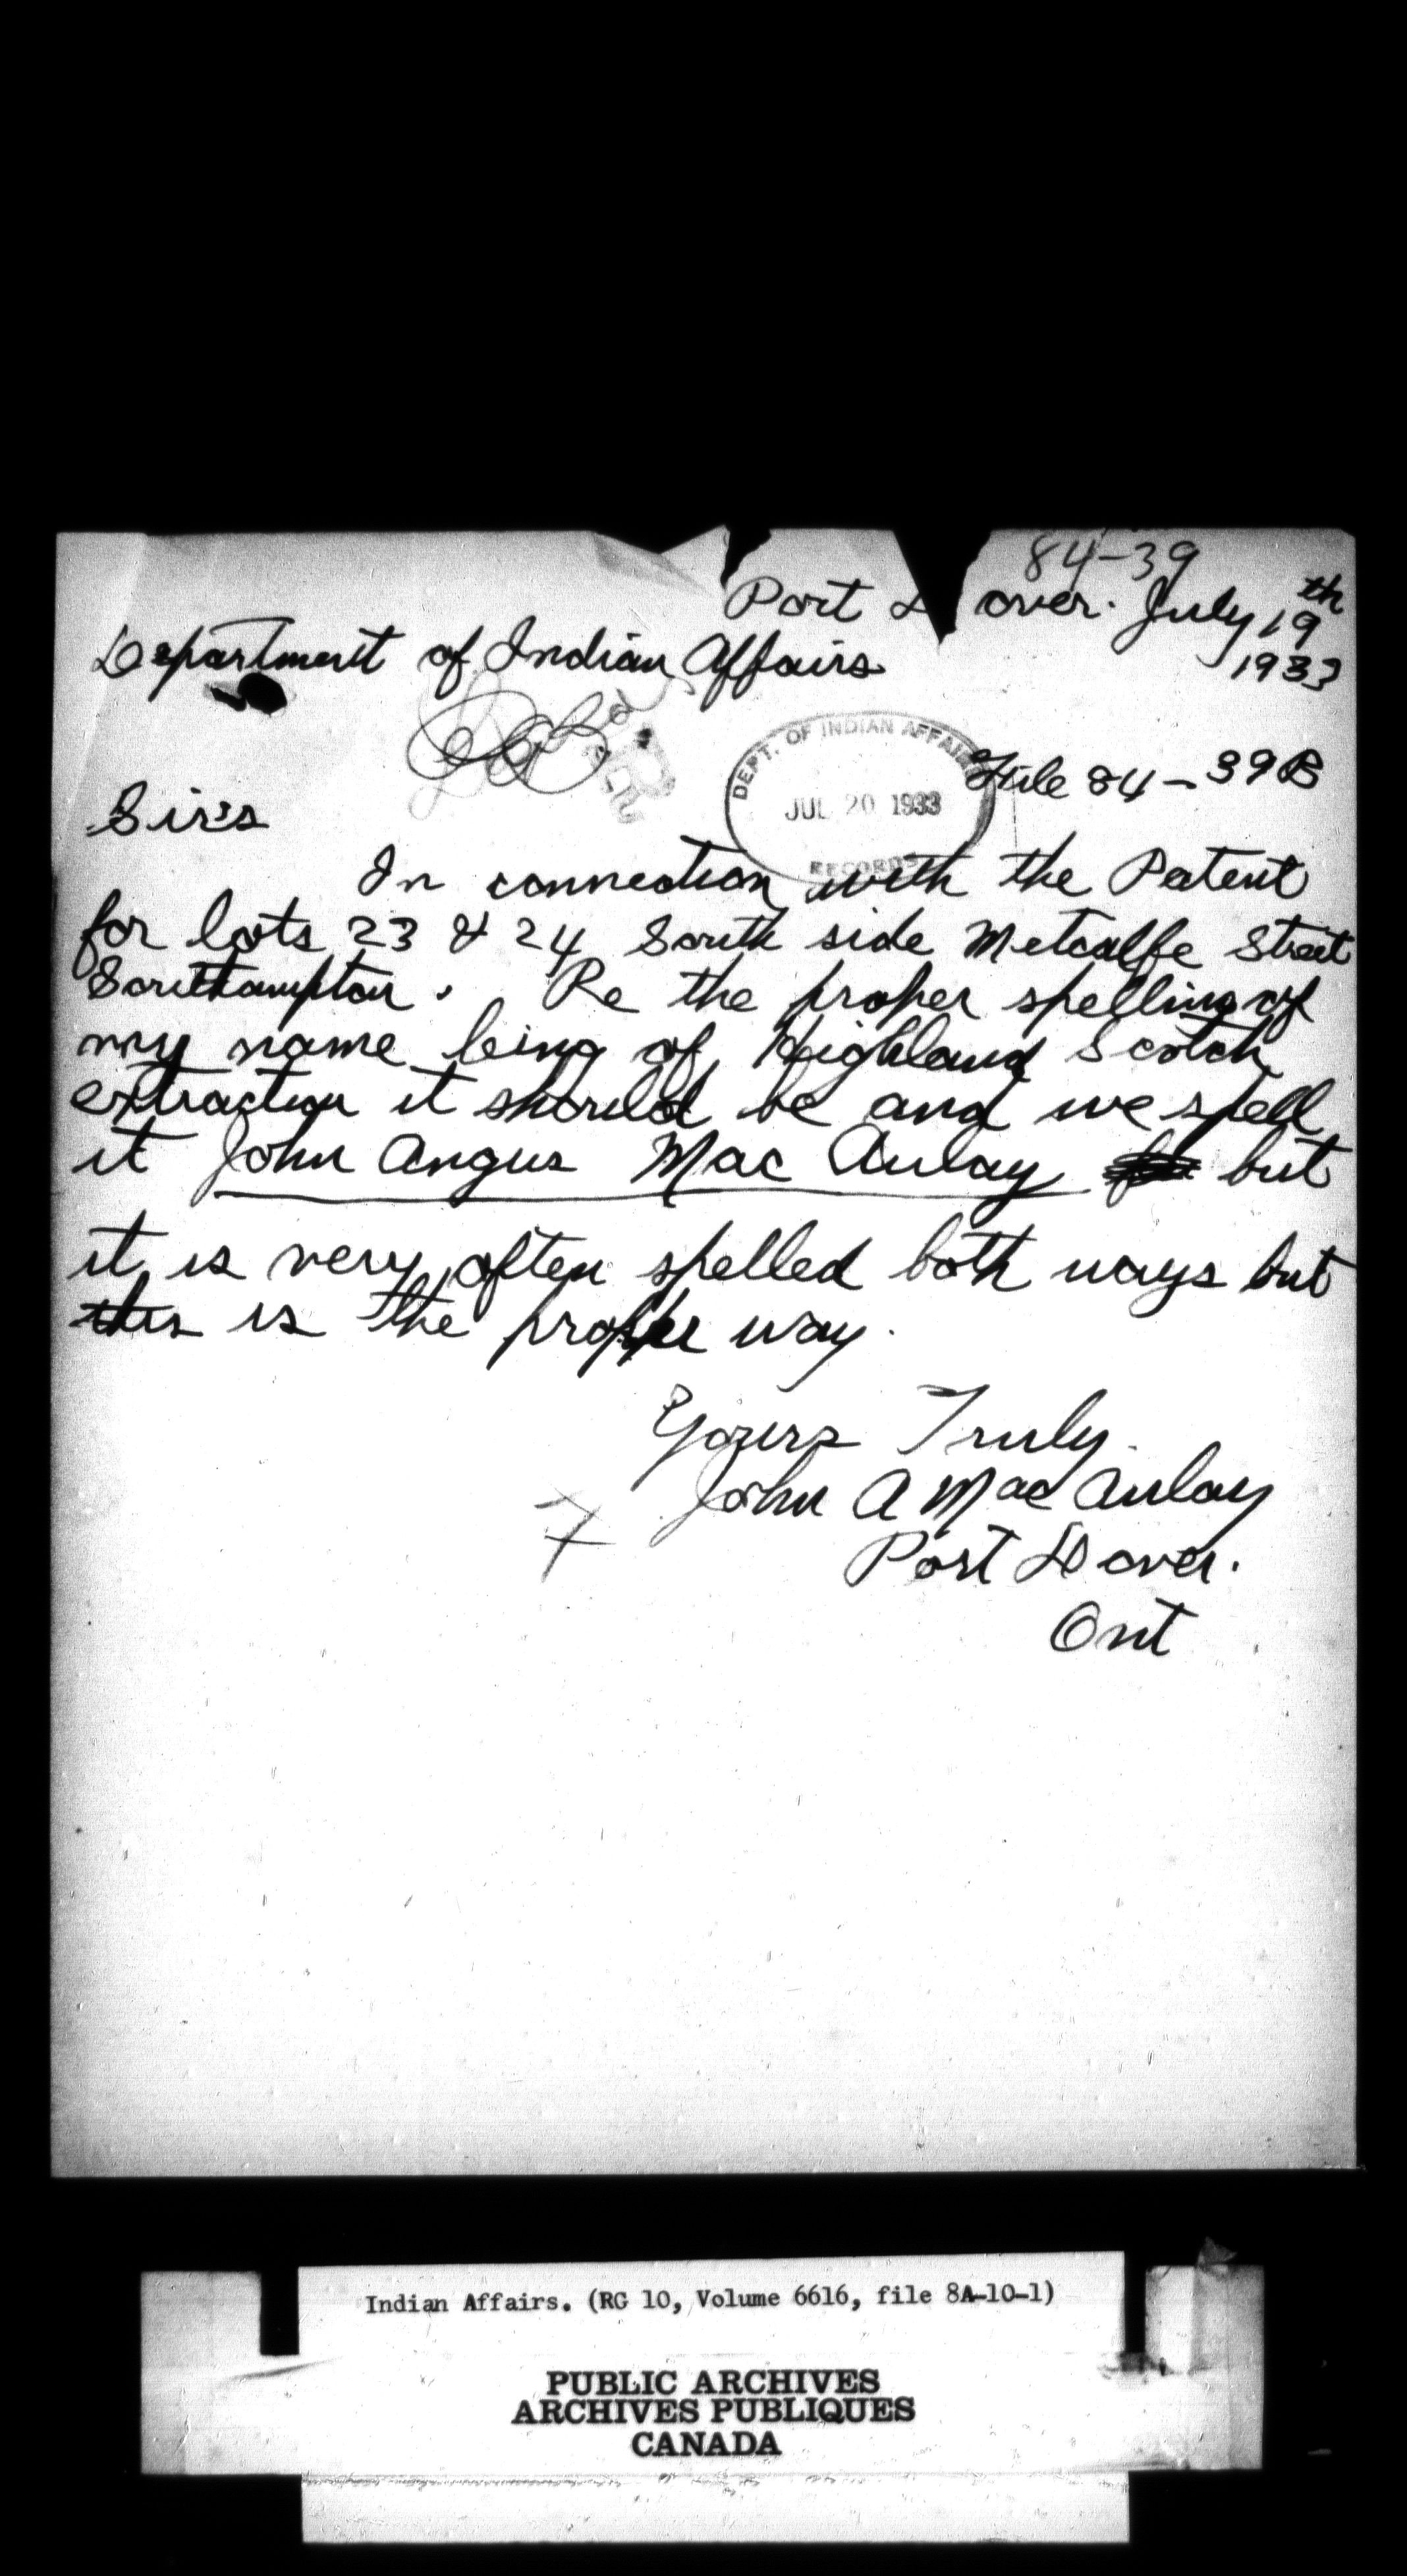 84-39
Port Dover. July 19th
1933
Department of Indian Affairs
DEPT. OF INDIAN AFFAIRS
JUL 20 1933
RECORDS
File 84-39B
Sirs
In connection with the Patent
for lots 23 & 24 South side Metcalfe Street
Southampton. Re the proper spelling of
my name being of Highland Scotch
extraction it should be and we spell
it John Angus Mac Aulay but
it is very often spelled both ways but
this is the proper way.
Yours Truly.
John A Mac Aulay
Port Dover.
Ont
Indian Affairs. (RG 10, Volume 6616, file 8A-10-1)
PUBLIC ARCHIVES
ARCHIVES PUBLIQUES
CANADA